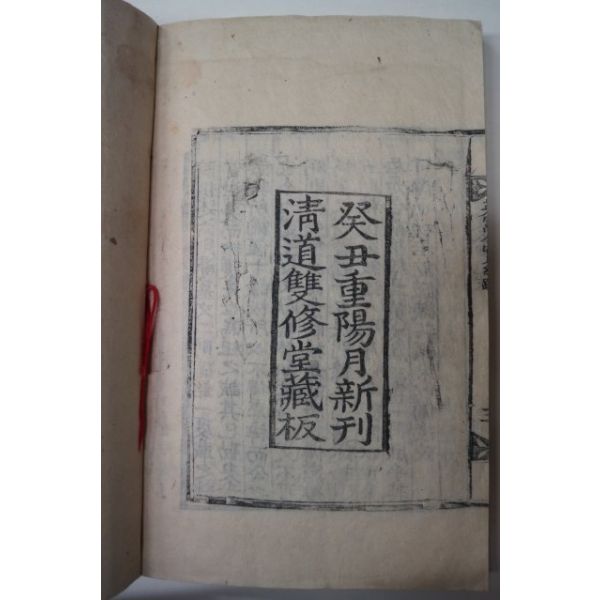 癸丑重陽月新刊
淸道雙修堂藏板